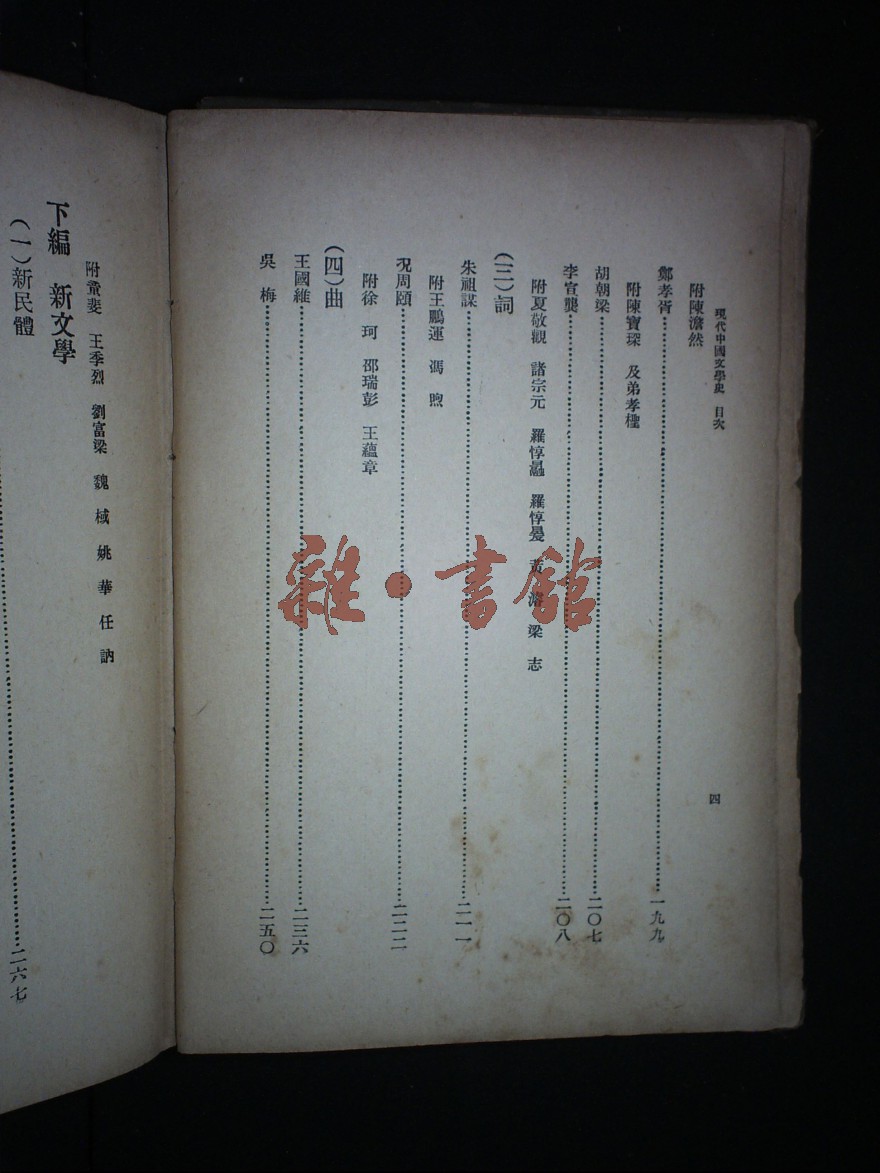 現代中國文學史 目次
四
附陳澹然
鄭孝胥……一九九
附陳寶琛 及弟孝檉
胡朝梁……二〇七
李宣龔……二〇八
附夏敬觀 諸宗元 羅惇曧 羅惇㬊 黃濬 梁志
(三)詞
朱祖謀……二一一
附王鵬運 馮煦
況周頤……二二二
附徐珂 邵瑞彭 王蘊章
(四)曲
王國維……二三六
吳梅……二五〇
附童斐 王季烈 劉富梁 魏棫 姚華 任訥
下編 新文學
(一)新民體……二六七
雜·書館